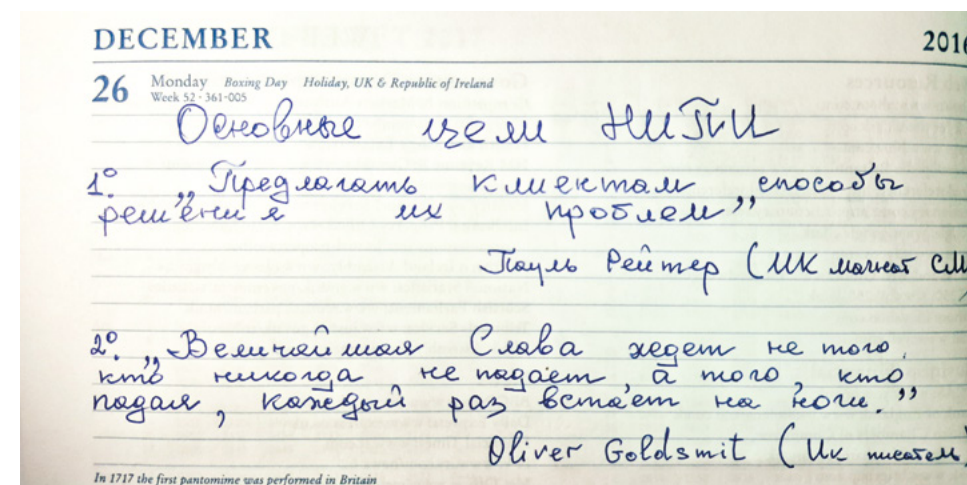 DECEMBER 2016
26 Monday Boxing Day Holiday, UK & Republic of Ireland
Week 52 · 361-005
Основные цели НИПИ
1°. „Предлагать клиентам способы
решения их проблем”
Пауль Рейтер (UK магнат СМИ
2°. „Величайшая Слава ждет не того,
кто никогда не падает, а того, кто
падая, каждый раз встает на ноги.”
Oliver Goldsmit (Uk писатель)
In 1717 the first pantomime was performed in Britain